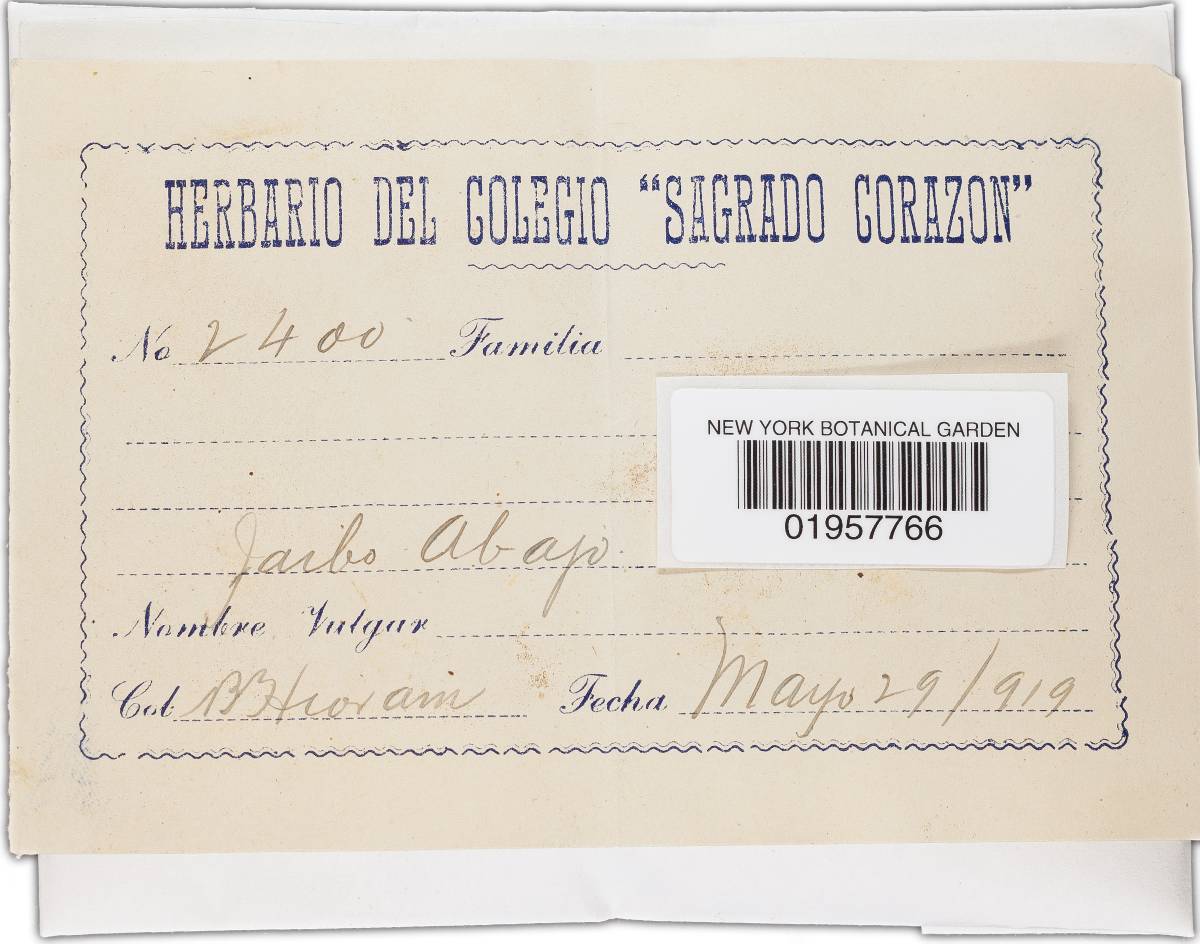 HERBARIO DEL COLEGIO “SAGRADO CORAZON”
No 2400 Familia
NEW YORK BOTANICAL GARDEN
01957766
Jaibo Abajo
Nombre Vulgar
Col BBHioram Fecha Mayo 29/919